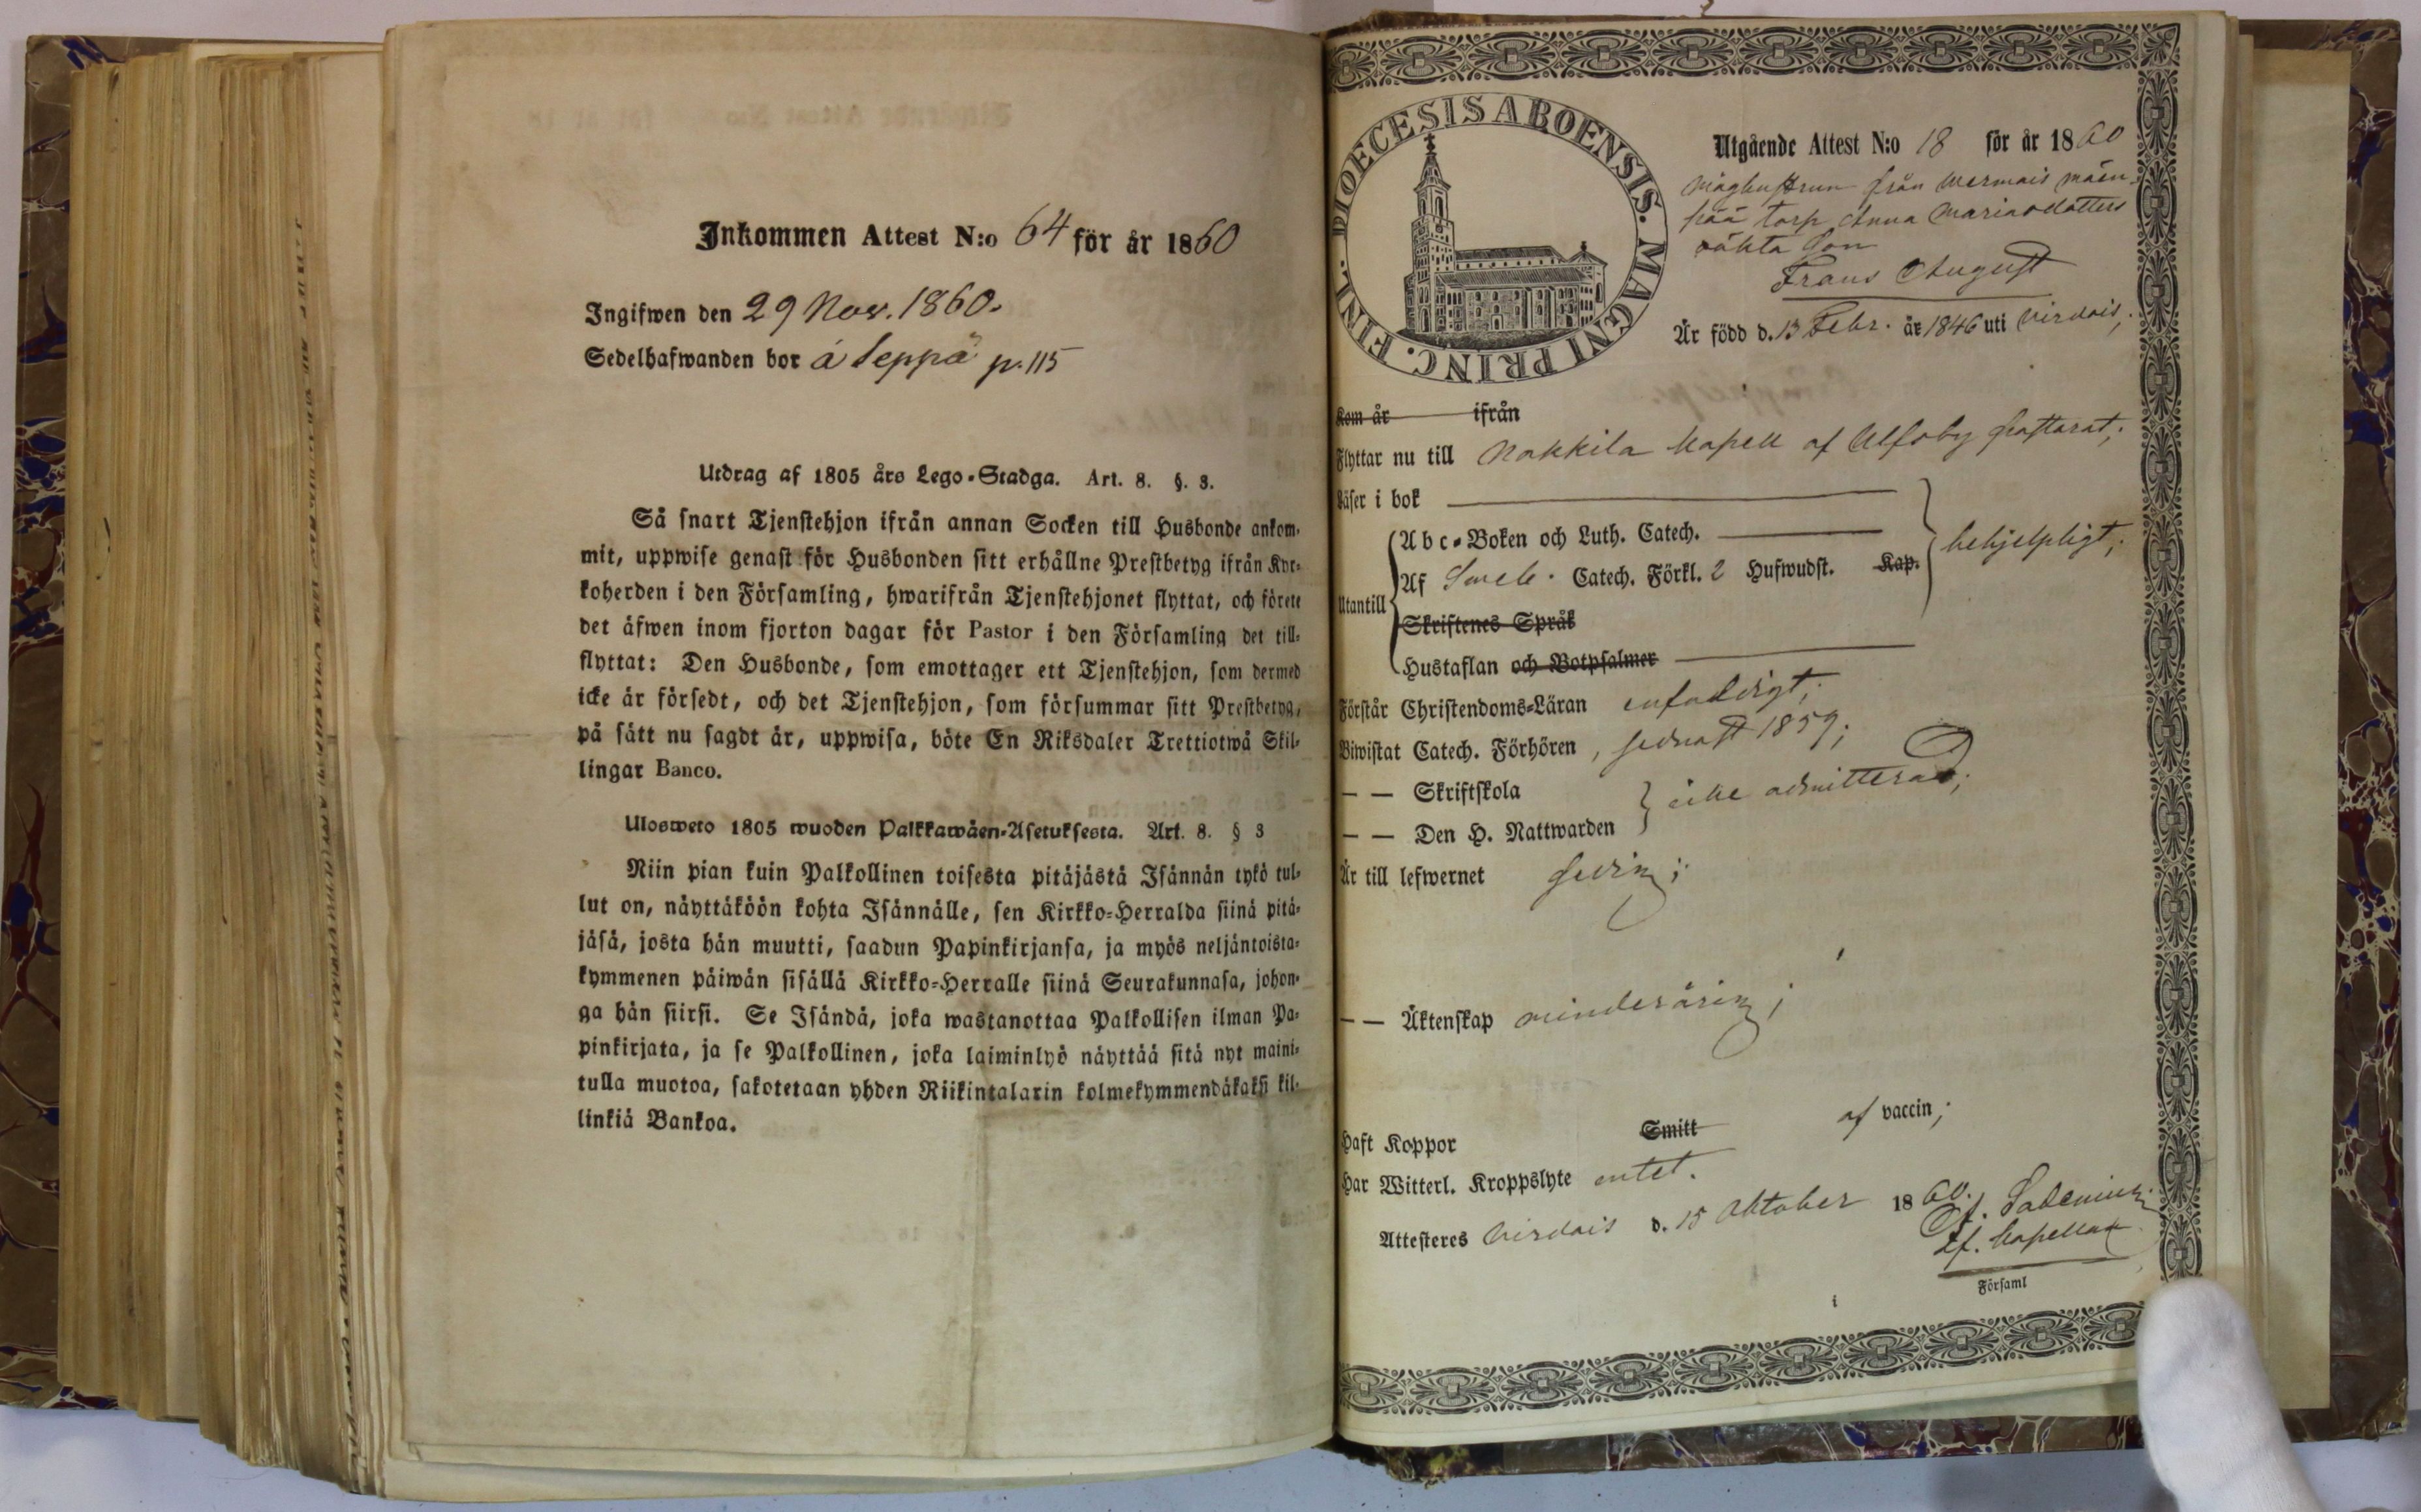 Inkommen Attest N:o 64 för år 1860
Ingifwen den 29 Nov. 1860.
Sedelhafwanden bor å Seppä p. 115
Utdrag af 1805 års Lego-Stadga. Art. 8. §. 3.
Så snart Tjenstehjon ifrån annan Socken till Husbonde ankom-
mit, uppwise genast för Husbonden sitt erhållne Prestbetyg ifrån Kyr-
koherden i den Församling, hwarifrån Tjenstehjonet flyttat, och förete
det äfwen inom fjorton dagar för Pastor i den Församling det till-
flyttat: Den Husbonde, som emottager ett Tjenstehjon, som dermed
icke är försedt, och det Tjenstehjon, som försummar sitt Prestbetyg,
på sätt nu sagdt är, uppwisa, böte En Riksdaler Trettiotwå Skil-
lingar Banco.
Ulosweto 1805 wuoden Palkkawäen-Asetuksesta. Art. 8. § 3
Niin pian kuin Palkollinen toisesta pitäjästä Isännän tykö tul-
lut on, näyttäköön kohta Isännälle, sen Kirkko-Herralda siinä pitä-
jäsä, josta hän muutti, saadun Papinkirjansa, ja myös neljäntoista-
kymmenen päiwän sisällä Kirkko-Herralle siinä Seurakunnasa, johon-
ga hän siirsi. Se Isändä, joka wastanottaa Palkollisen ilman Pa-
pinkirjata, ja se Palkollinen, joka laiminlyö näyttää sitä nyt maini-
tulla muotoa, sakotetaan yhden Riikintalarin kolmekymmendäkaksi kil-
linkiä Bankoa.
DIOECESIS ABOENSIS. MAGNI PRINC. FINL.
Utgående Attest N:o 18 för år 1860
från
torp Anna Mariasdotters
oäkta Son
Frans August
Är född d. 13 Febr. år 1846 uti Virdois;
Kom år ifrån
Flyttar nu till Nakkila Kapell af Ulfsby pastorat;
Läser i bok
Abc-Boken och Luth. Catech.
Utantill Af Sweb. Catech. Förkl. 2 Hufwudst. Kap. behjelpligt;
Skriftenes Språk
Hustaflan och Botpsalmer
Förstår Christendoms-Läran enfaldigt;
Biwistat Catech. Förhören, sednast 1859;
— — Skriftskola
— — Den H. Nattwarden icke admitterad;
Är till lefwernet sedig;
— — Äktenskap minderårig;
Haft Koppor Smitt af vaccin;
Har Witterl. Kroppslyte intet.
Attesteres Virdois d. 15 Oktober 1860.
Kapellan
Församl
i